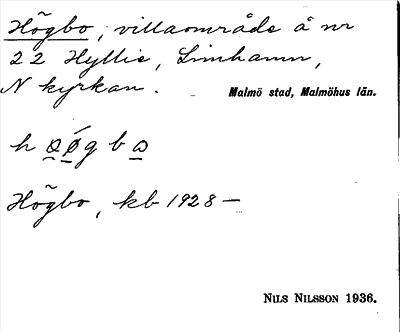 Högbo, villaområde å nr
22 Hyllie, Limhamn,
N kyrkan.
Malmö stad, Malmöhus län.
h ø̀g b
Högbo, kb 1928 —
NILS NILSSON 1936.